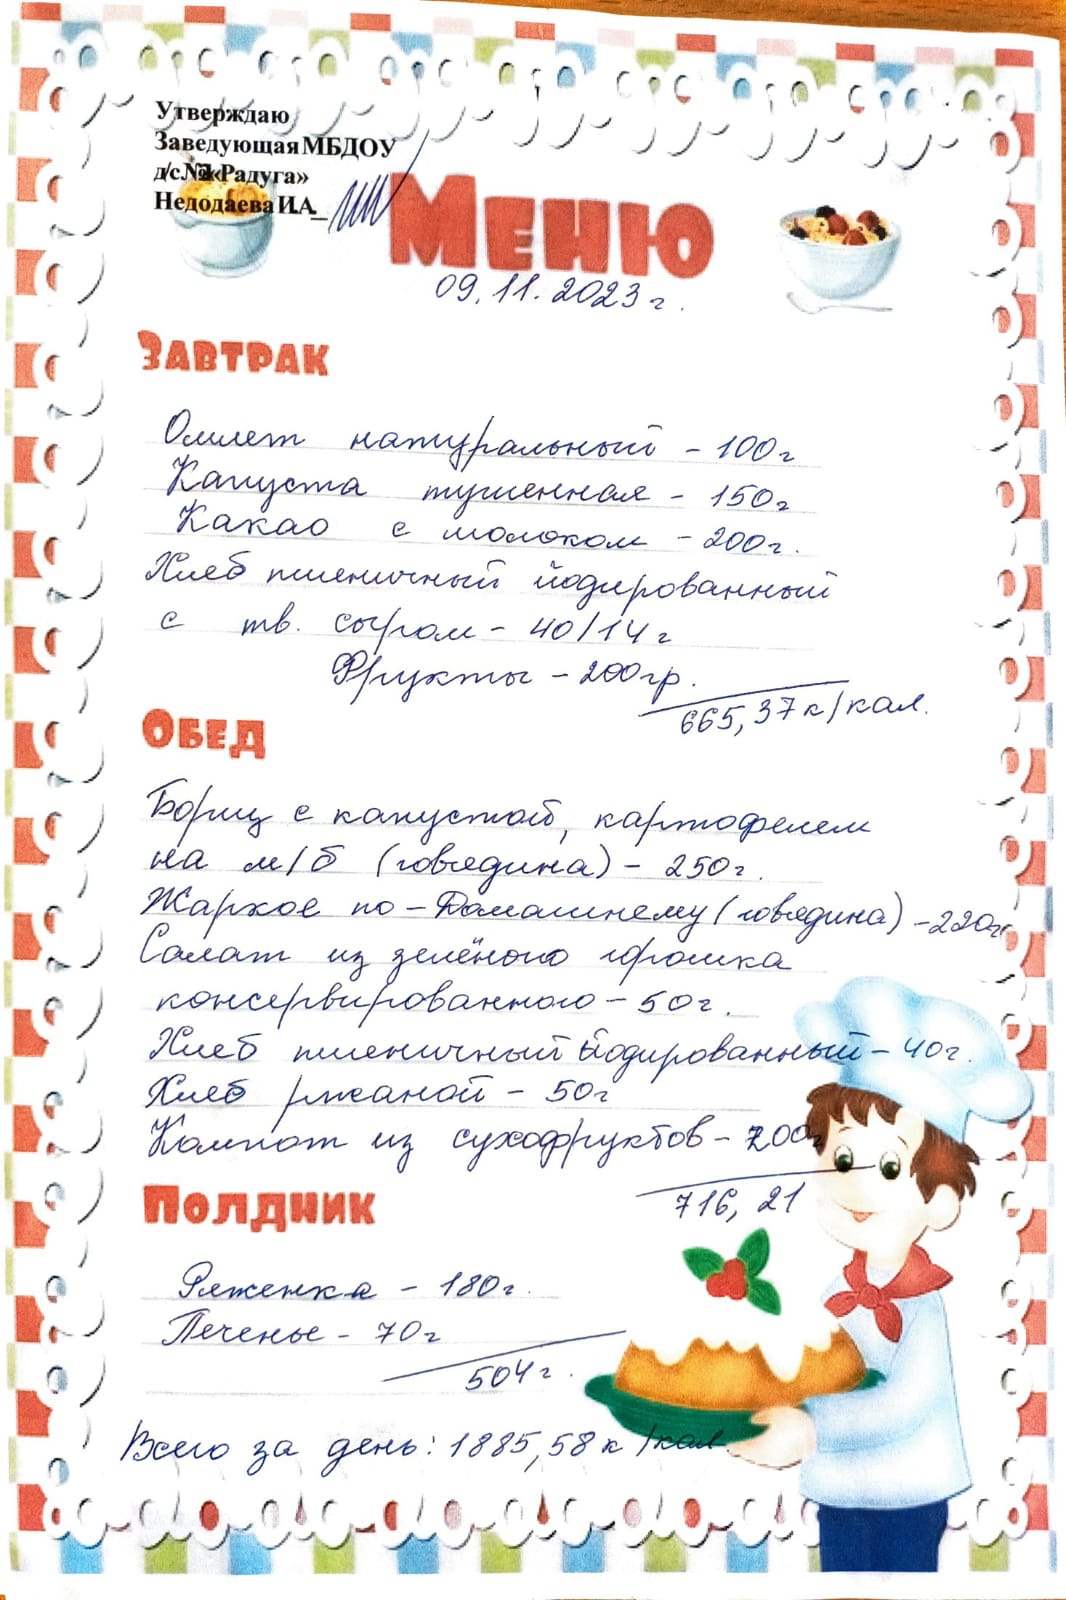 Утверждаю
Заведующая МБДОУ
д/с «Радуга»
Недодаева И.А_
Меню
09.11.2023г.
Завтрак
Омлет натуральный - 100г
Капуста тушенная - 150г
Какао с молоком - 200г.
Хлеб пшеничный йодированный
с тв. сыром - 40/14г
Фрукты - 200гр.
665,37 к/кал.
Обед
Борщ с капустой, картофелем
на м/б (говядина) - 250г.
Жаркое по-Домашнему (говядина) - 220г
Салат из зелёного горошка
консервированного - 50г.
Хлеб пшеничный йодированный - 40г.
Хлеб ржаной - 50г
Компот из сухофруктов - 200г
716,21
Полдник
Ряженка - 180г.
Печенье - 70г
504г.
Всего за день: 1885,58 к/кал.